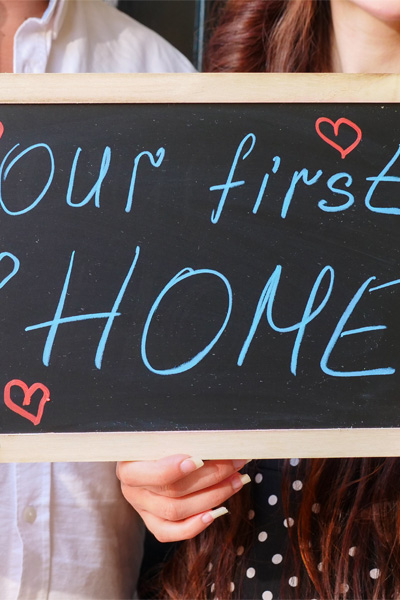 our first
HOME